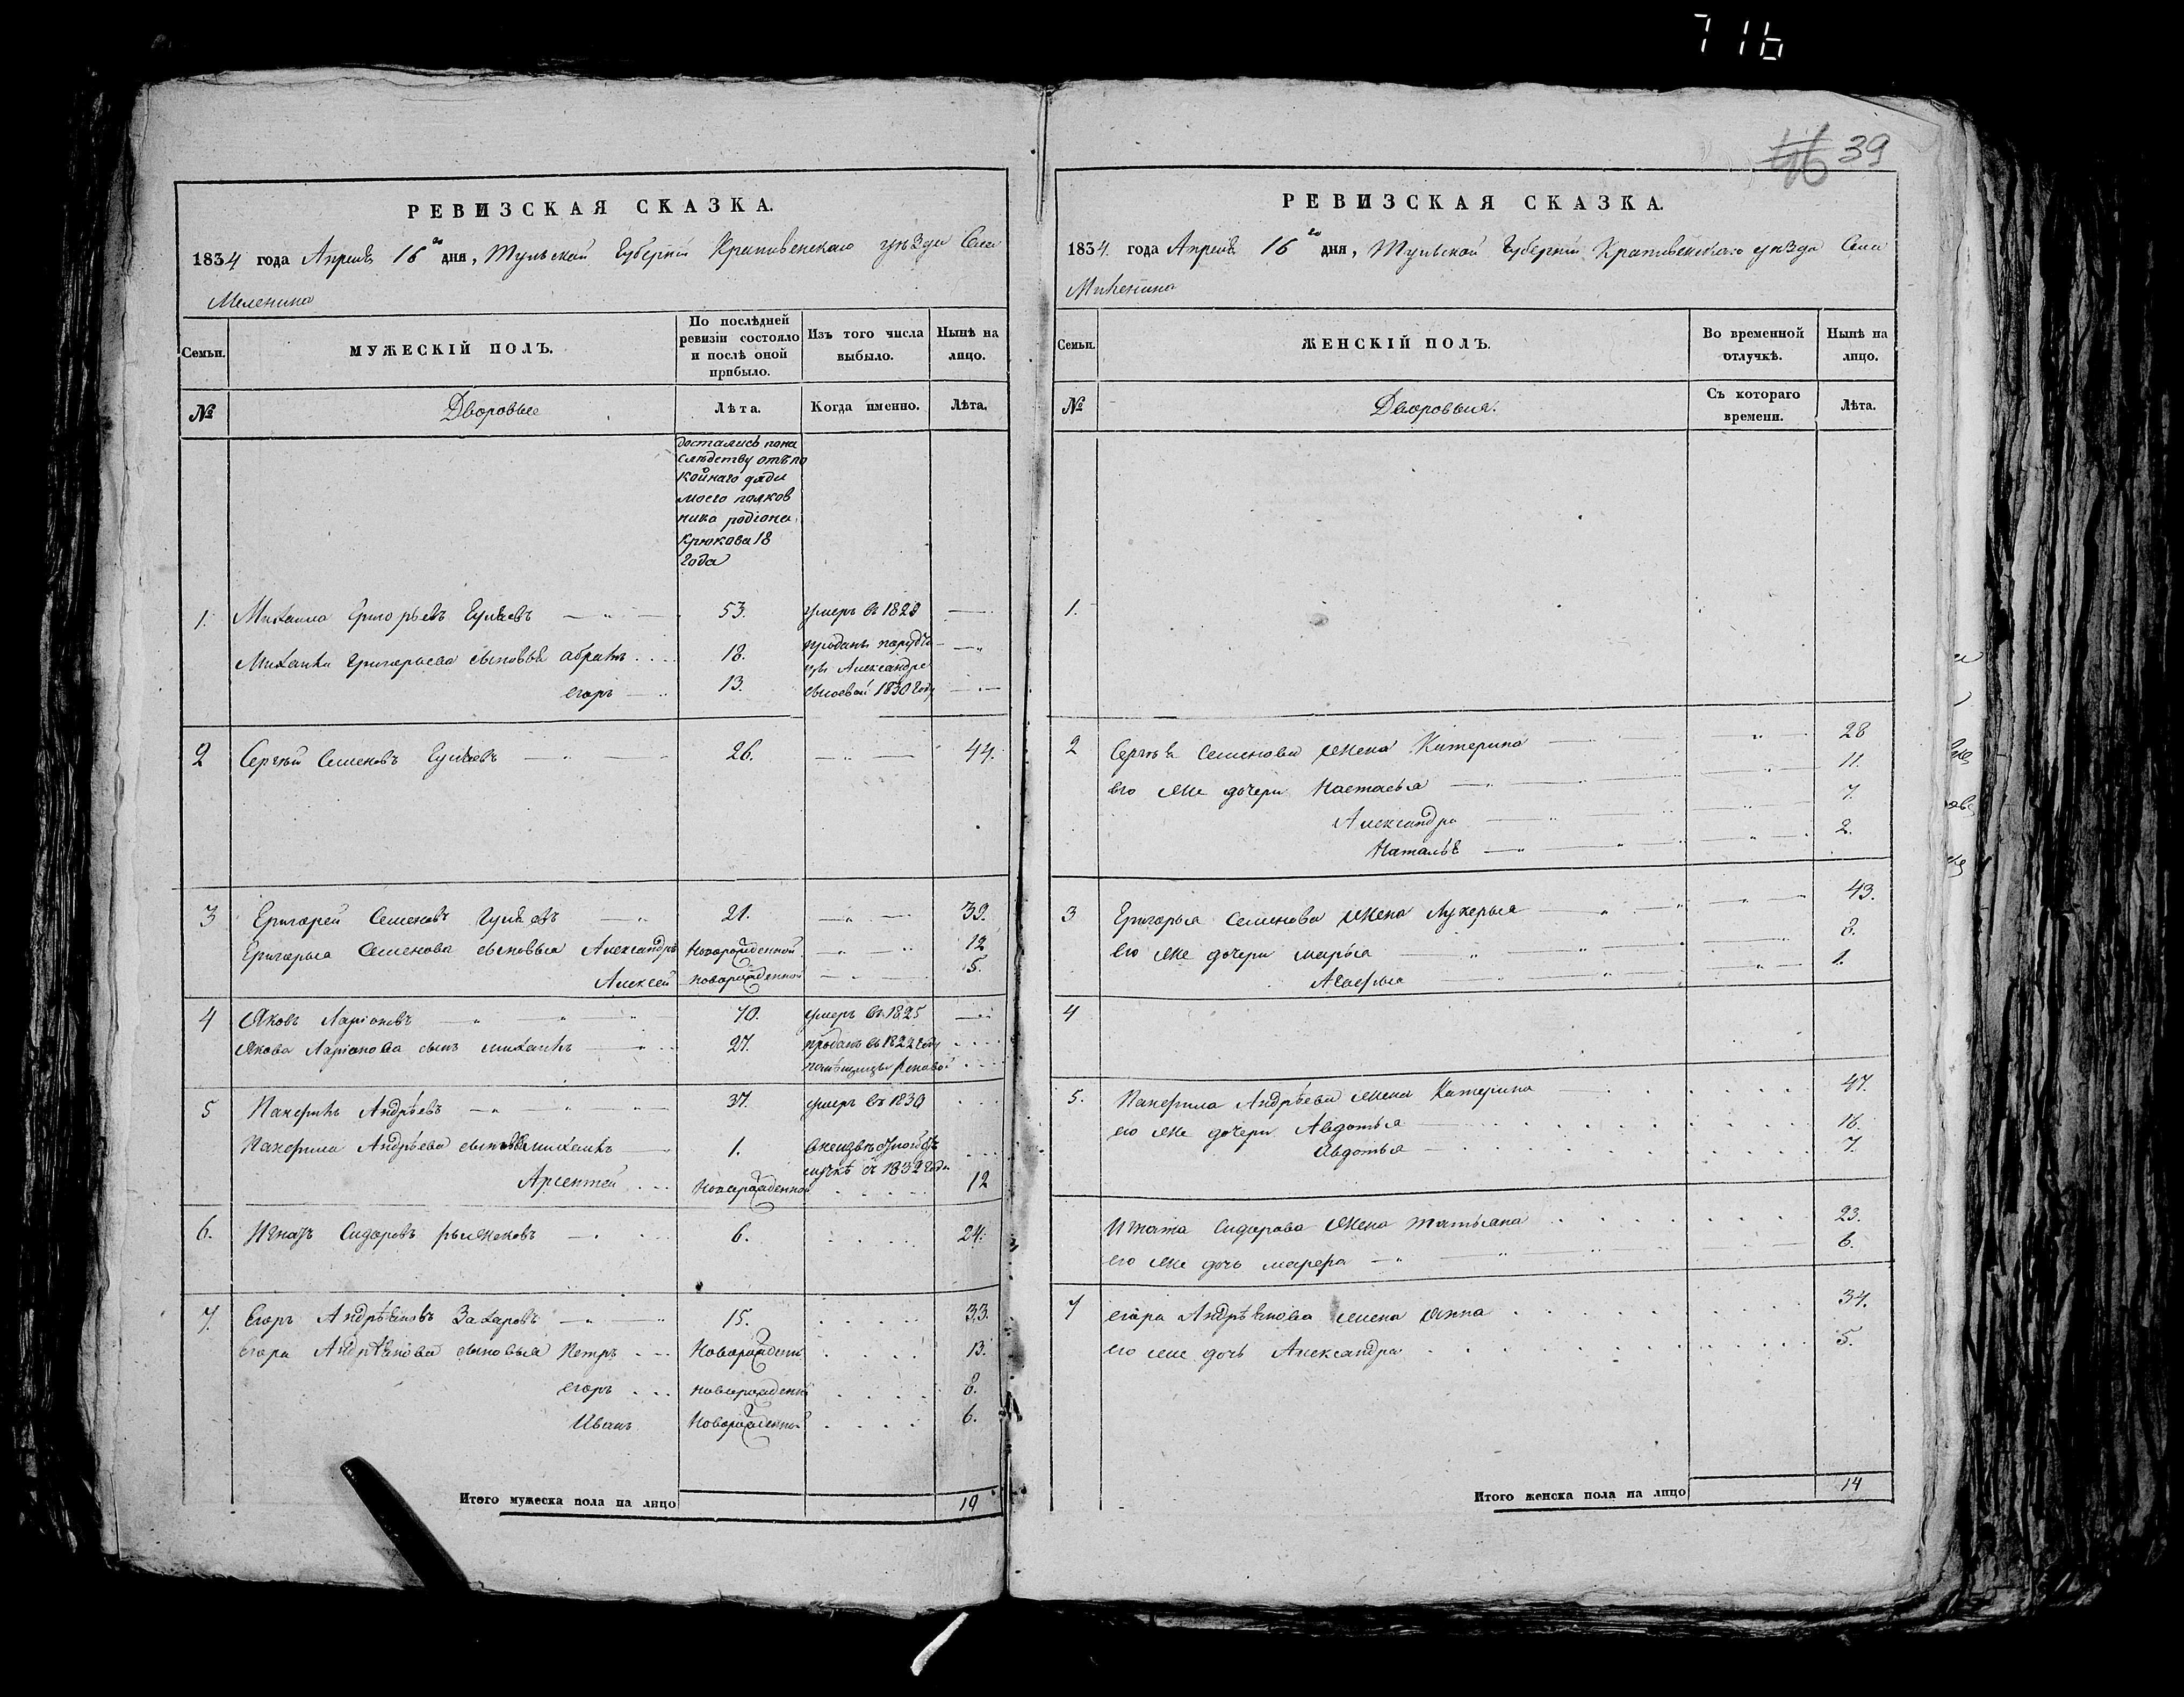 716
39
РЕВИЗСКАЯ СКАЗКА.
1834 года Апреля 16 го дня, Тульской Губерніи Крапивенскаго уѣзда Села
Меленина
Семьи.
МУЖЕСКІЙ ПОЛЪ.
По послѣдней ревизіи состояло и послѣ оной прибыло.
Изъ того числа выбыло.
Нынѣ на лицо.
№
Дворовые
Лѣта.
Когда именно.
Лѣта.
достались пона
слѣдству отъ по
койнаго дяди
моего полков
ника родіона
Крюкова 18
года
1. Михаила Григорьевъ 53. умеръ въ 1829
Михаила Григорьева сыновья 18. проданы
егоръ 13. 1830 году
2 Сергѣй Семеновъ 26. 44.
3 Григорей Семеновъ 21. 39.
Григорья Семенова сыновья Александръ Новорожденной 12
Алексей новорожденной 5.
4 Яковъ Ларіоновъ 70. умеръ въ 1825
Якова Ларіонова сынъ михаилъ 27. проданъ въ 1822 году
5 Панфилъ Андрѣевъ 37. умеръ въ 1830
Панфила Андрѣева михаилъ 1.
съ 1832 года
Арсентей Новорожденной 12
6. Игнатъ Сидоровъ рыжековъ 6. 24.
7. Егоръ Андрѣяновъ Захаровъ 15. 33.
егора Андрѣянова сыновья Петръ Новорожденн 13.
егоръ новорожденн 8.
Иванъ Новорожденной 6.
Итого мужеска пола на лицо 10
РЕВИЗСКАЯ СКАЗКА.
1834. года Апреля 16 го дня, Тульской Губерніи Крапивенскаго уѣзда Села
Меленина
Семьи.
ЖЕНСКІЙ ПОЛЪ.
Во временной отлучкѣ.
Нынѣ на лицо.
№
Дворовыя.
Съ котораго времени.
Лѣта.
1.
2 Сергѣя Семенова жена Катерина 28
его же дочери Настасья 11.
Александра 7.
Наталья 2.
3 Григорья Семенова жена Лукерья 43.
его же дочери марья 8.
1.
4
5. Панфила Андрѣева жена Катерина 47.
его же дочери Авдотья 16.
Авдотья 7.
Игната Сидорова жена татьяна 23.
его же дочь марфа 6.
7 егора Андрѣянова жена анна 34.
его же дочь Александра 5.
Итого женска пола на лицо 14